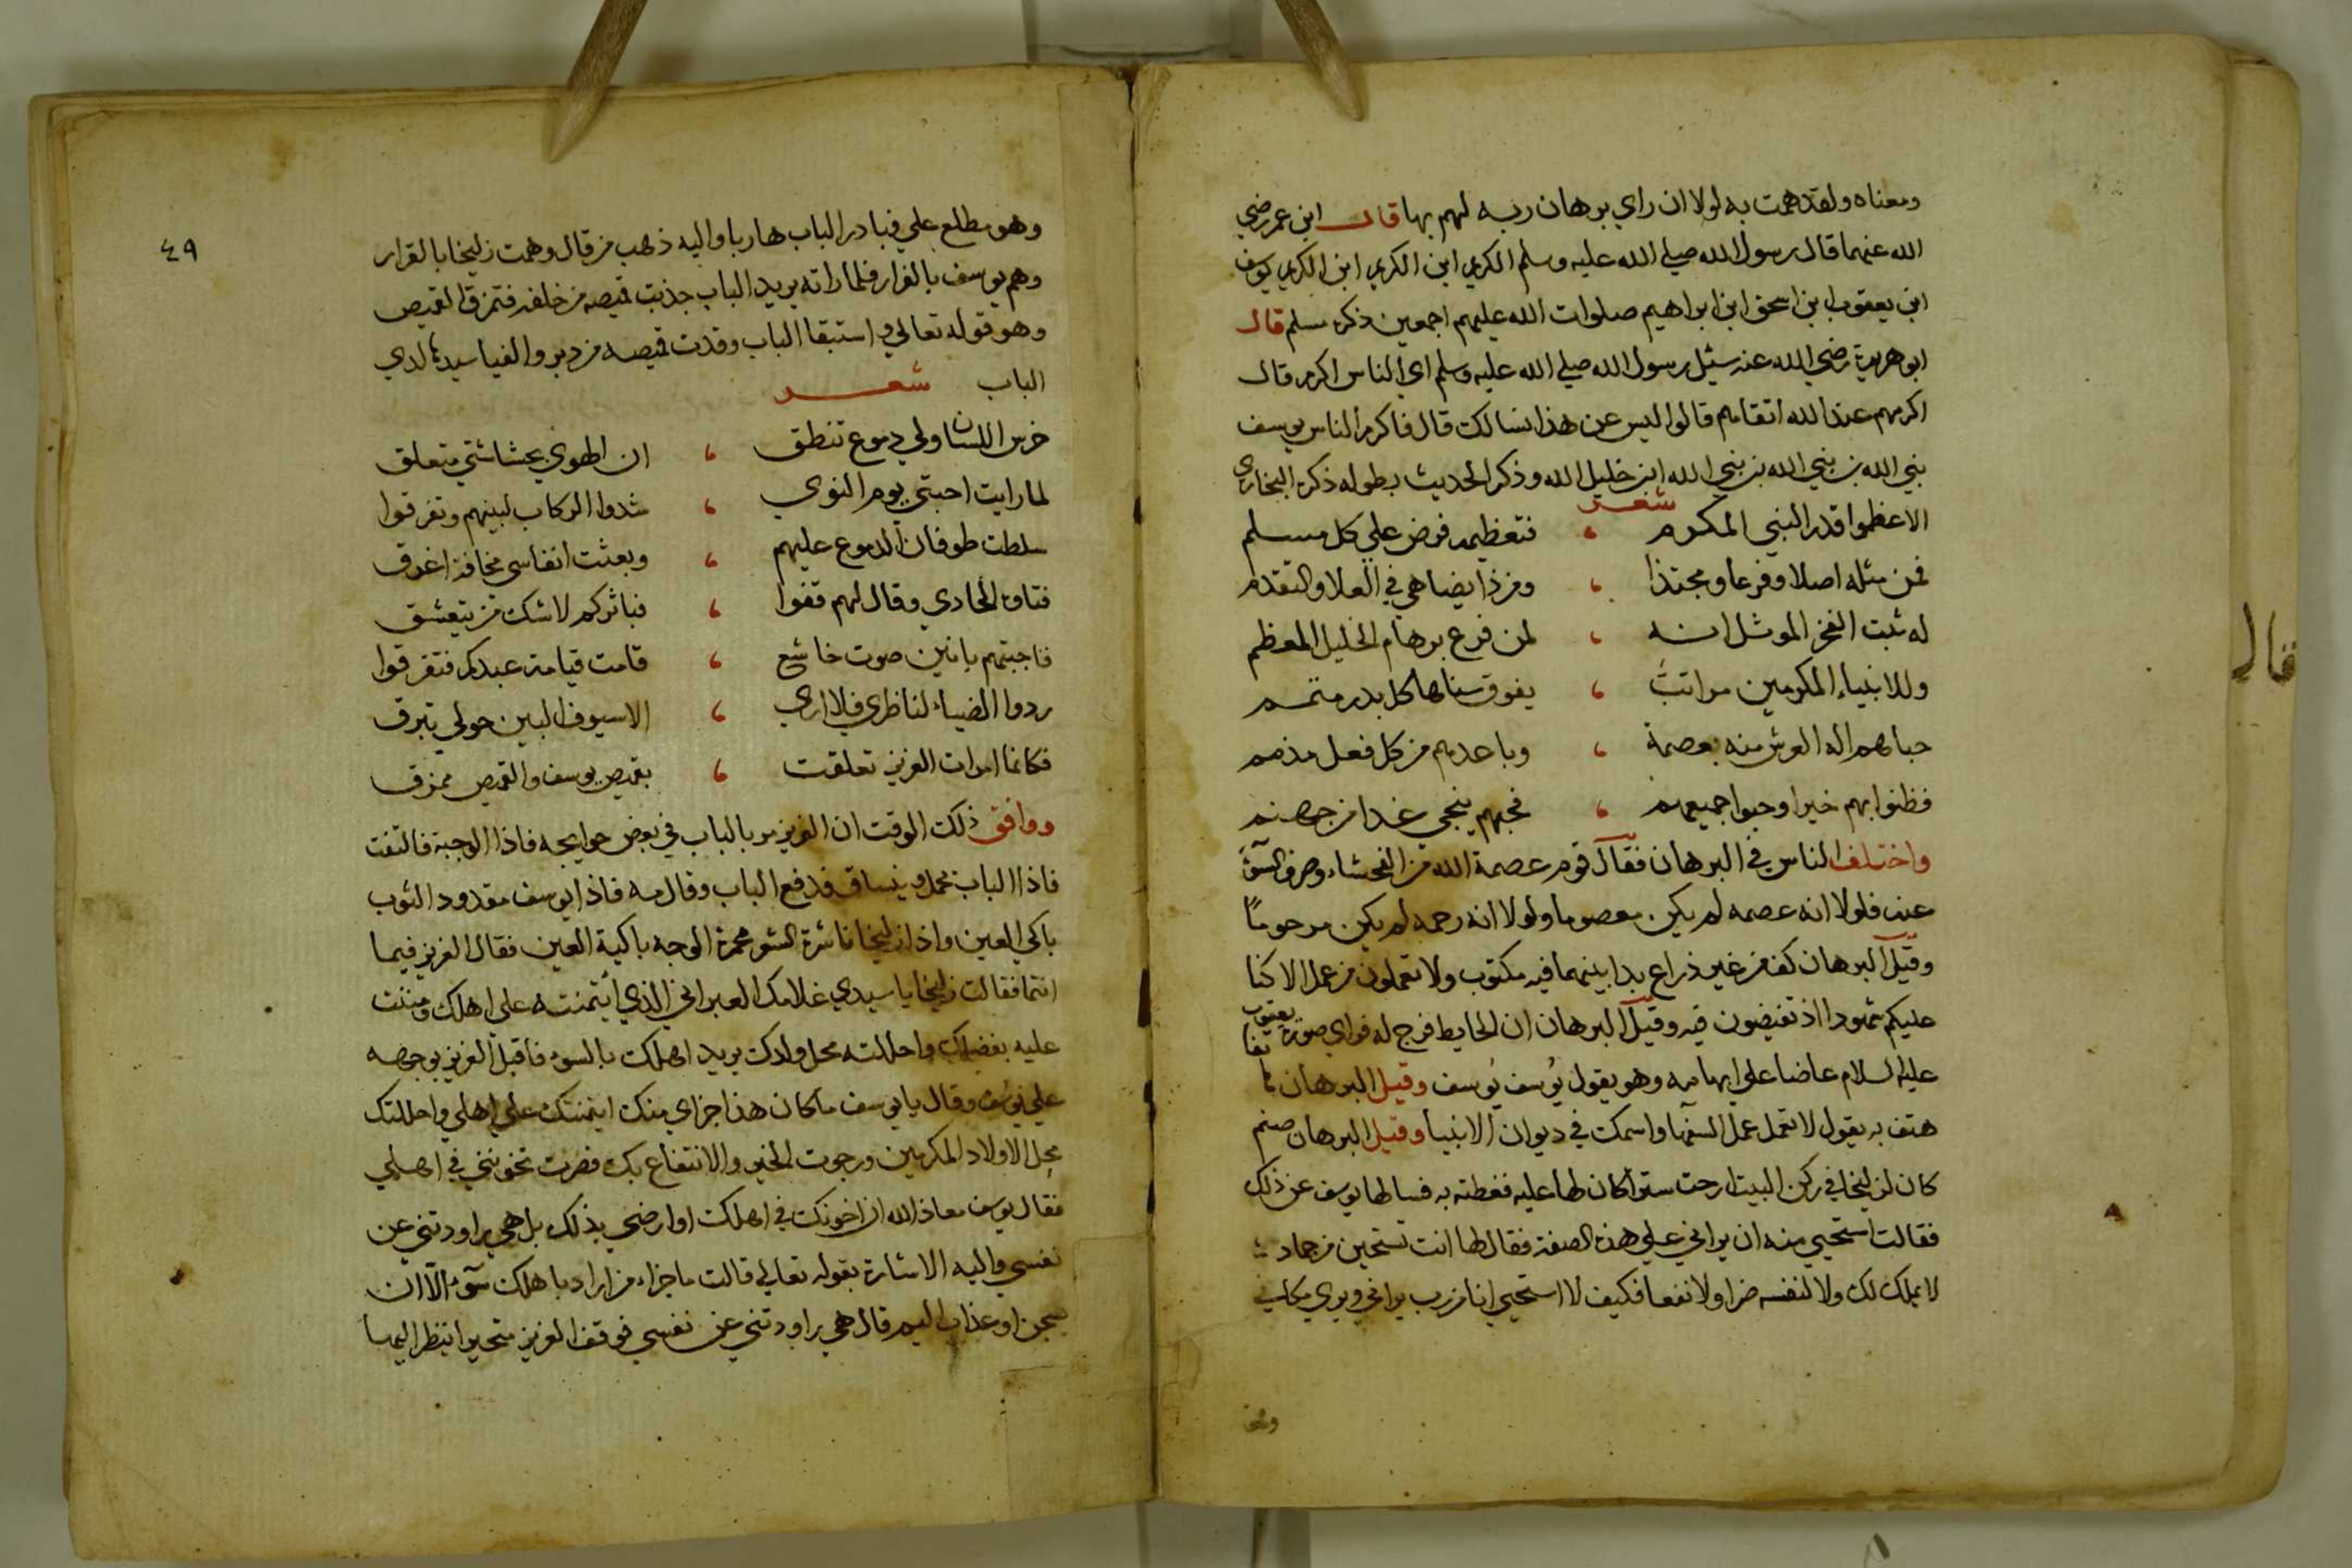 ومعناه ولقد همت به لولا ان راي برهان ربه لهم بها قال ابن عمر رضي
الله عنهما قال رسول الله صلي الله عليه وسلم الكريم ابن الكريم ابن الكريم يوسف
ابن يعقوب ابن اسحق ابن ابراهيم صلوات الله عليهم اجمعين ذكره مسلم قال
ابو هريرة رضي الله عنه سئل رسول الله صلي الله عليه وسلم اي الناس اكرم قال
اكرمهم عند الله اتقاهم قالوا ليس عن هذا نسالك قال فاكرم الناس يوسف
نبي الله بن نبي الله بن نبي الله ابن خليل الله وذكر الحديث بطوله ذكره البخاري
شعر
الا عظموا قدر النبي المكرم ، فتعظيمه فرض علي كل مسلم
فمن مثله اصلا وفرعا ومحتدا ، ومن ذا يضاهي في العلا والتقدم
له ثبت الفخر الموثل انه ، لمن فرع برهام الخليل المعظم
وللانبياء المكرمين مراتب ، يفوق سناها كل بدر متمم
حباهم اله العرش منه بعصمة ، وباعدهم من كل فعل مذمم
فظنوا بهم خيرا وحبوا جميعهم ، فحبهم ينجي غدا من جهنم
واختلف الناس في البرهان فقال قوم عصمة الله من الفحشاء وصرف السؤ
عنه فلولا انه عصمه لم يكن معصوما ولولا انه رحمه لم يكن مرحوما
وقيل البرهان كف من غير ذراع بدا بينهما فيه مكتوب ولا تعملون من عمل الا كنا
عليكم شهودا اذ تفيضون فيه وقيل البرهان ان الحايط فرج له فراي صورة يعقوب
عليه السلام عاضا علي ابهامه وهو يقول يوسف يوسف وقيل البرهان هاتفا
هتف به يقول لا تعمل عمل السفها واسمك في ديوان الانبيا وقيل البرهان صنم
كان لزليخا في ركن البيت ارخت سترا كان لها عليه فغطته به فسالها يوسف عن ذلك
فقالت استحيي منه ان يراني علي هذه الصفة فقال لها انت تستحين من جماد
لا يملك لك ولا لنفسه ضرا ولا نفعا فكيف لا استحيي انا من رب يراني ويري مكاني
وهو
وهو مطلع علي فبادر الباب هاربا واليه ذهب من قال وهمت زليخا بالقرار
وهم يوسف بالفرار فلما راته يريد الباب جذبت قميصه من خلفه فتمزق القميص
وهو قوله تعالي واستبقا الباب وقدت قميصه من دبر والفيا سيدها لدي
الباب شعر
خرس اللسان ولي دموع تنطق ، ان الهوي بحشاشتي متعلق
لما رايت احبتي يوم النوي ، شدوا الركاب لبينهم وتفرقوا
سلطت طوفان الدموع عليهم ، وبعثت انفاسي مخافة اغرق
فتاوه الحادي وقال لهم قفوا ، فباثركم لا شك من يتعشق
فاجبتهم بانين صوت خاشع ، قامت قيامة عبدكم فتفرقوا
ردوا الضياء لناظري فلا اري ، الا سيوف البين حولي تبرق
فكانما امرات العزيز تعلقت ، بقميص يوسف والقميص ممزق
ووافق ذلك الوقت ان العزيز مر بالباب في بعض حوايجه فاذا الوجبة فالتفت
فاذا الباب فدفع الباب وقال مه فاذا يوسف مقدود الثوب
باكي العين واذا زليخا ناشرة الشعر محمرة الوجه باكية العين فقال العزيز فيما
انتما فقالت زليخا يا سيدي غلامك العبراني الذي ايتمنته علي اهلك ومننت
عليه بفضلك واحللته محل ولدك يريد اهلك بالسوء فاقبل العزيز بوجهه
علي يوسف وقال يا يوسف ما كان هذا جزاي منك ايتمنتك علي اهلي واحللتك
محل الاولاد المكرمين ورجوت الخير والانتفاع بك فصرت تخونني في اهلي
فقال يوسف معاذ الله ان اخونك في اهلك او ارضي بذلك بل هي راودتني عن
نفسي واليه الاشارة بقوله تعالي قالت ما جزاء من اراد باهلك سوء الا ان
يسجن او عذاب اليم قال هي راودتني عن نفسي فوقف العزيز متحيرا ينظر اليهما
٤٩